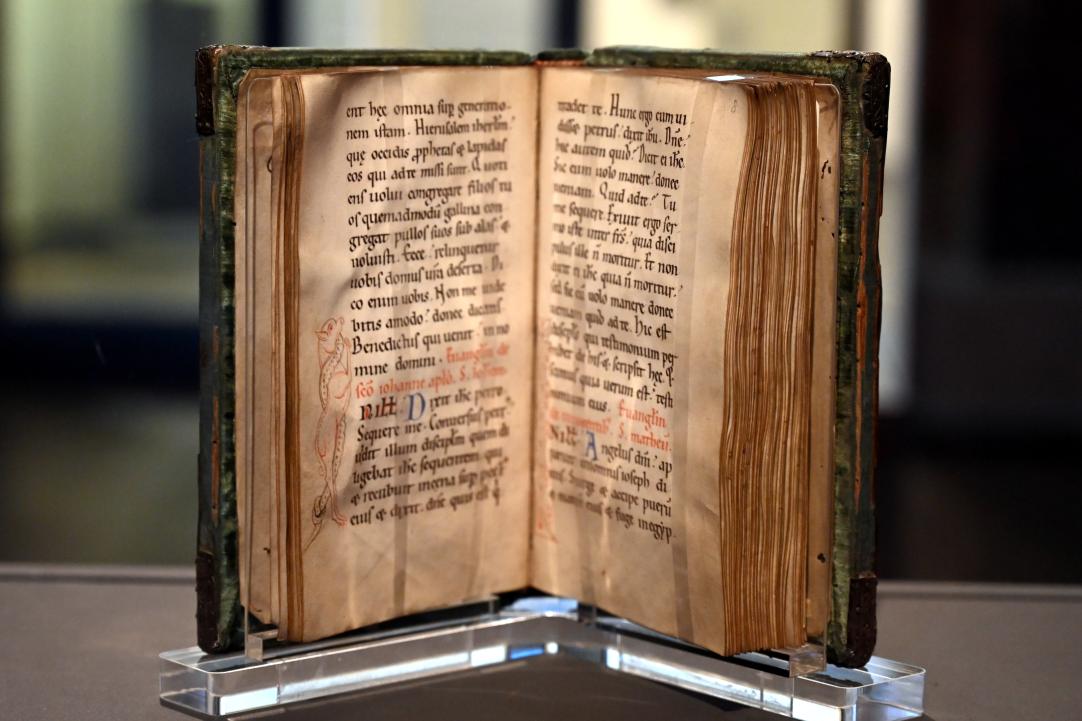 ent hęc omnia sup generatio-
nem istam. Hierusalem iherl'm
quę occidis pphetas & lapidas
eos qui ad te missi sunt. Quoti
ens volui congregare filios tu
os quemadmodū gallina con
gregat pullos suos sub alas &
noluisti. Ecce relinquetur
uobis domus ura deserta. Di
co enim uobis. Non me uide
bitis amodo donec dicatis
Benedictus qui uenit in no
mine domini. Euangliū de
scō iohanne aplō. S. iohan
Dixit ihc petro
Sequere me. Conversus petr'
uidit illum discipulm quem di
ligebat ihc sequentem. qui
& recubuit in cena sup pect'
eius & dixit. dne quis est q
tradet te. Hunc ergo cum ui
disset petrus dixit ihu. Dne
hic autem quid? Dicit ei ihc
Sic eum uolo manere donec
ueniam. Quid ad te? Tu
me sequere. Exiuit ergo ser
mo iste inter frs quia disci
pulus ille n moritur. Et non
dixit ei ihc quia n moritur.
sed sic eū uolo manere donec
ueniam quid ad te. Hic est
discipls qui testimonium per
hibet de his & scripsit hęc. &
scimus quia uerum est testi
monium eius. Euangliū
S. matheū.
Angelus dni ap
ioseph di
cens Surge & accipe puerū
& matrē eius & fuge in egyp
8